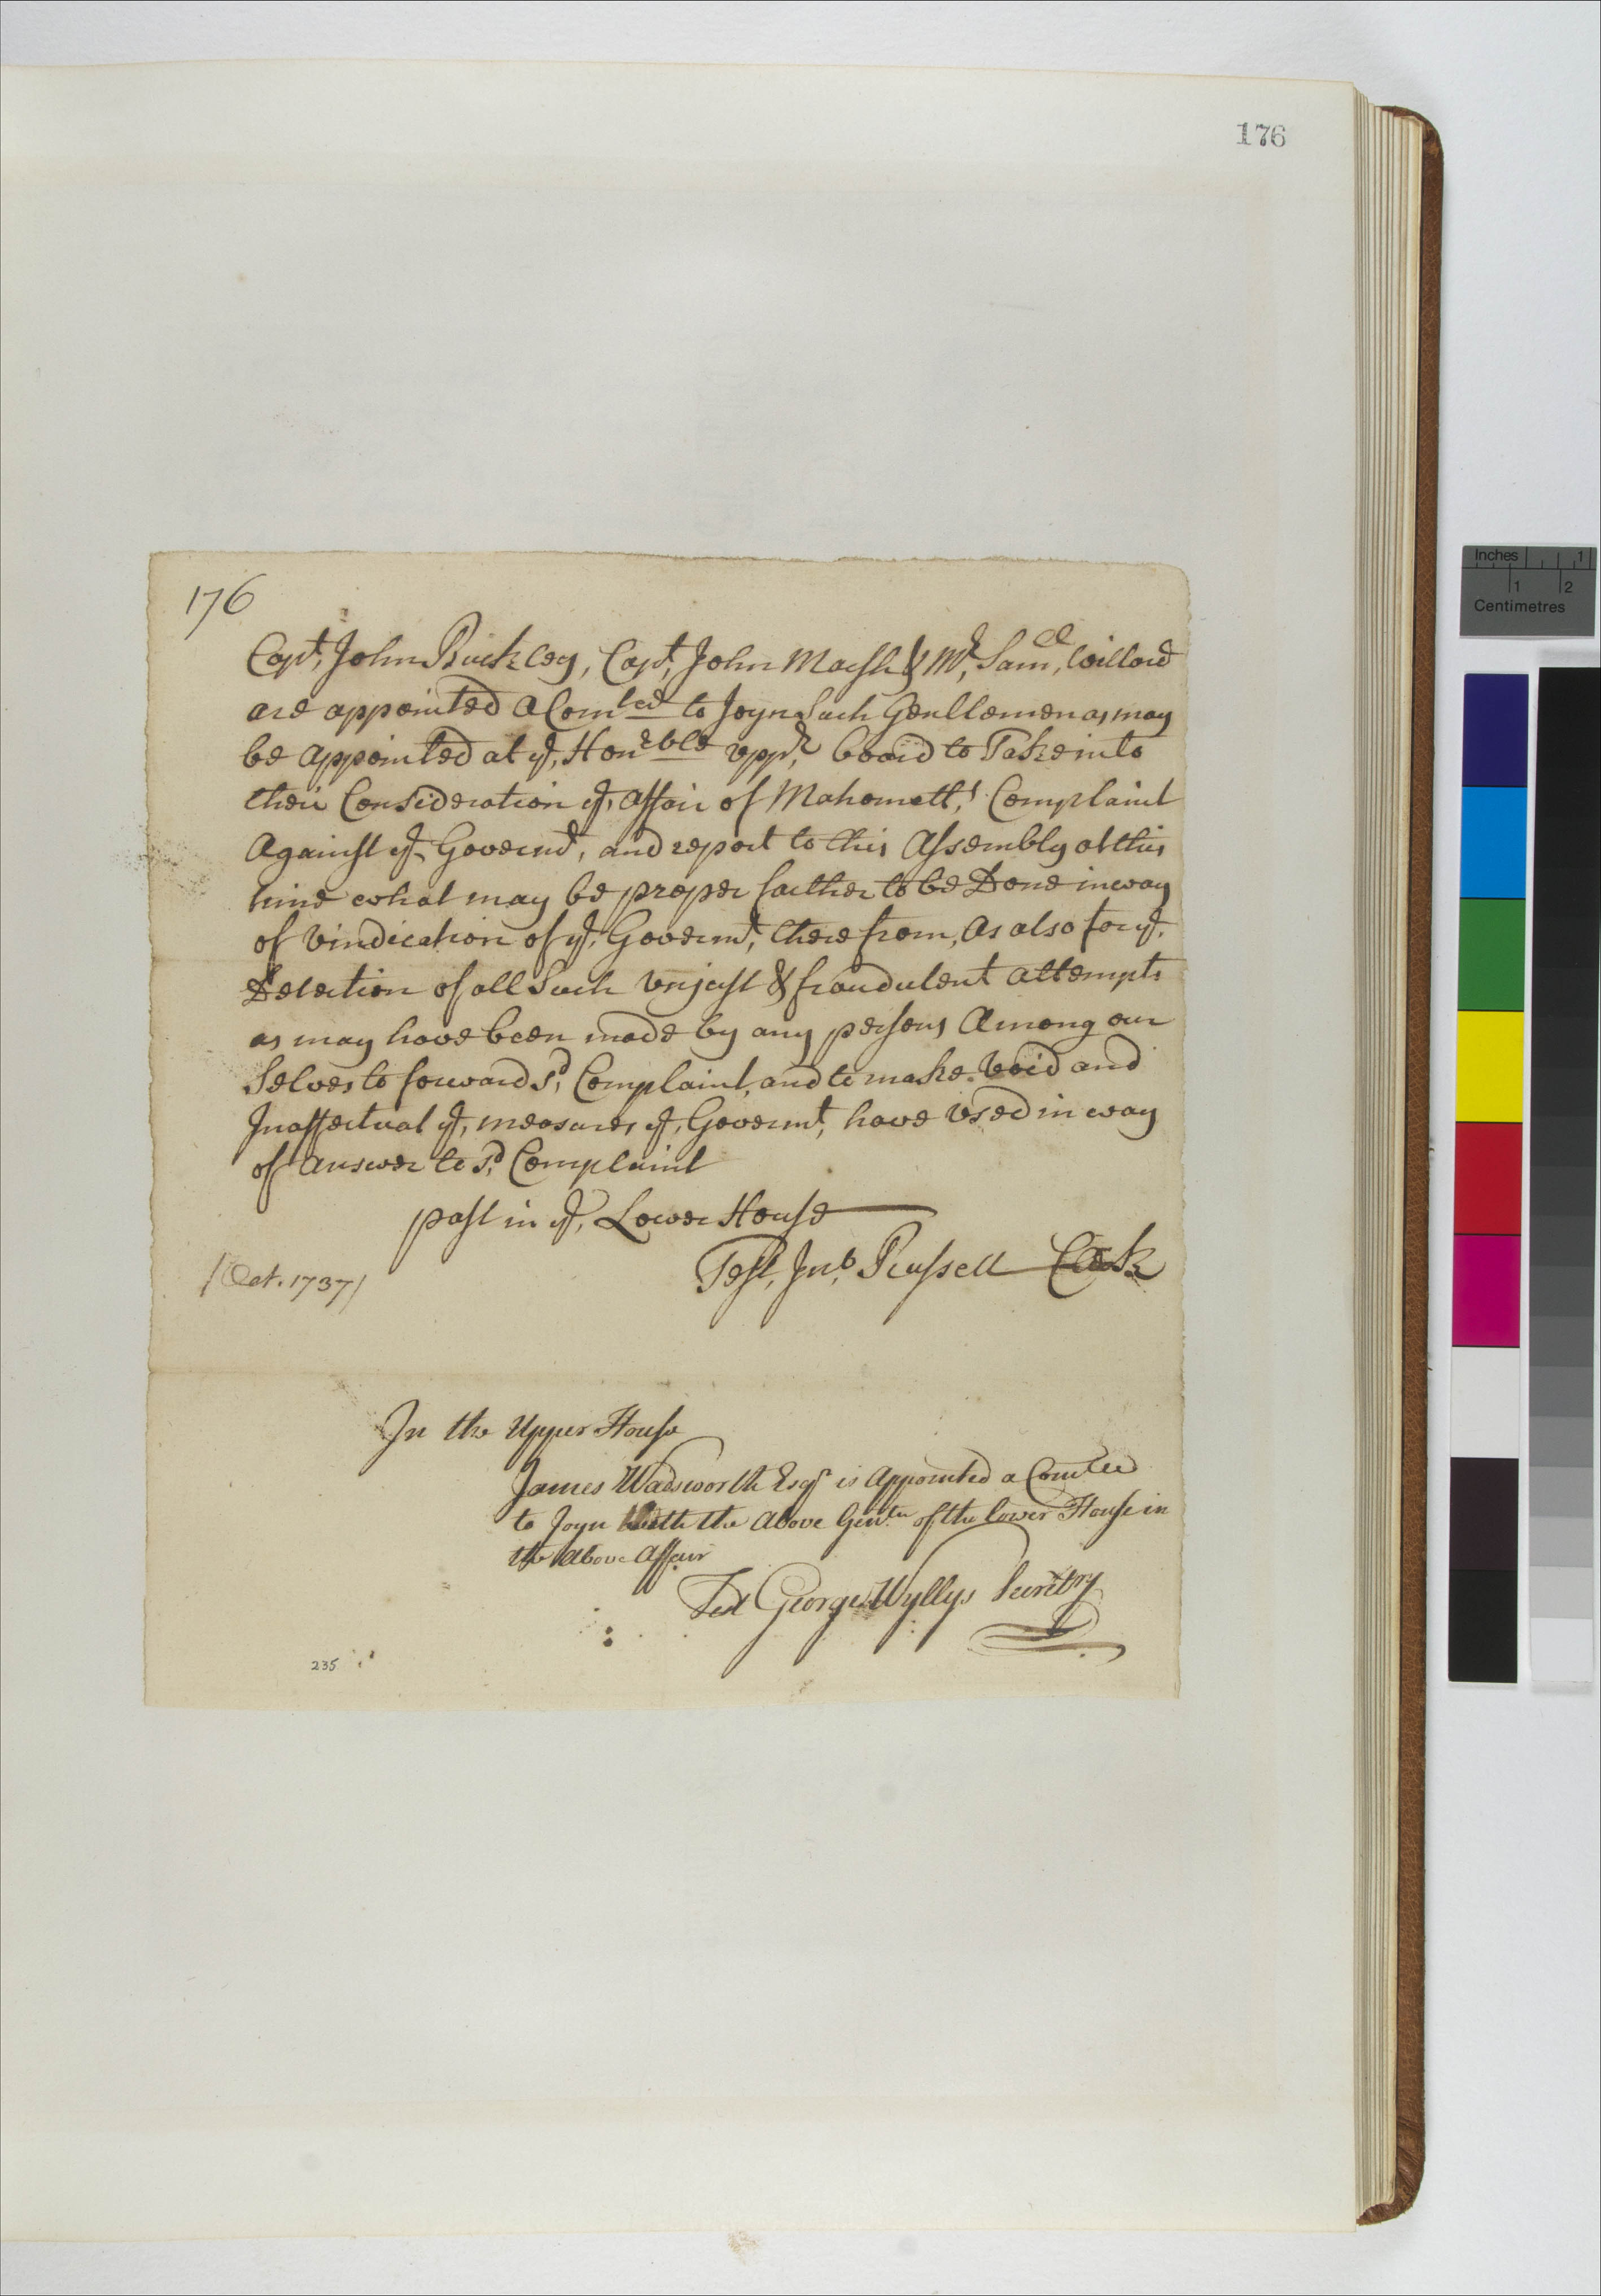 176
176
Capt, John Buckley, Capt, John Marsh & Mr, Samll, Willard
are appointed a Comtee to Joyn Such Gentlemen as may
be appointed at ye, Honrble uppr, board to Take into
their Consideration ye, affair of Mahomett,s Complaint
Against ye Governt, and report to this Assembly at this
time what may be proper farther to be Done in way
of Vindication of ye, Governt, there from, As also for ye,
Detection of all Such Unjust & fraudulent attempts
as may have been made by any persons Among our
Selves to forward sd, Complaint, and to make Void and
Inaffectual ye, measures ye, Governt, have Used in way
of answer to sd, Complaint
past in ye, Lower House
Test, Jno, Russell Clerk
/Oct. 1737/
In the Upper House
James Wadsworth Esqr is Appointed a Comtee
to Joyn with the Above Gentn of the lower House in
the Above Affair
Test George Wyllys Secretry
235
Inches 1
1 2
Centimetres